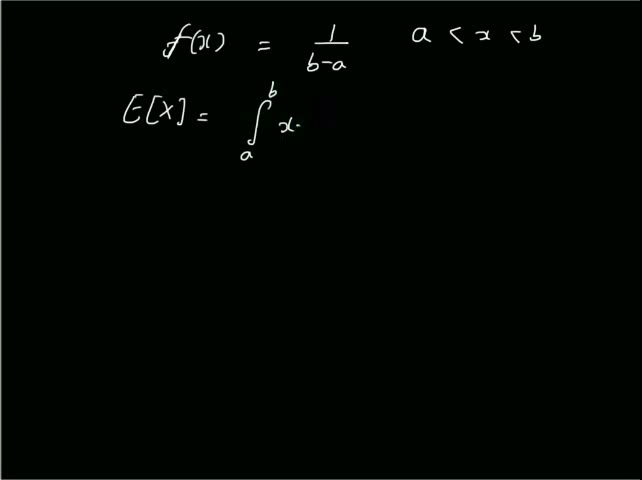 f(x) = 1/(b-a) a < x < b
E[X] = ∫_a^b x·